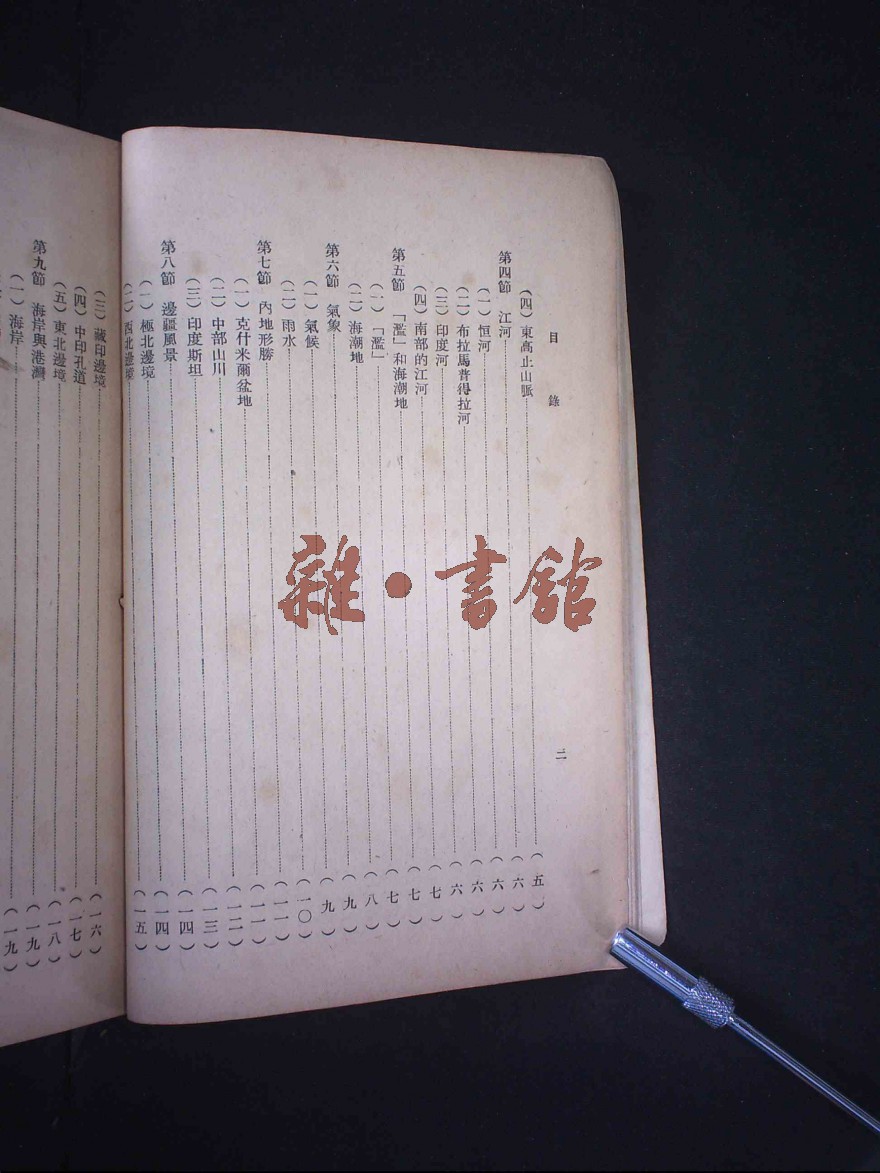 目錄 二
(四)東高止山脈……(五)
第四節 江河……(六)
(一)恒河……(六)
(二)布拉馬普得拉河……(六)
(三)印度河……(六)
(四)南部的江河……(七)
第五節 「濫」和海潮地……(七)
(一)「濫」……(七)
(二)海潮地……(八)
第六節 氣象……(九)
(一)氣候……(九)
(二)雨水……(一〇)
第七節 內地形勝……(一一)
(一)克什米爾盆地……(一一)
(二)中部山川……(一二)
(三)印度斯坦……(一三)
第八節 邊疆風景……(一四)
(一)極北邊境……(一四)
(二)西北邊境……(一五)
(三)藏印邊境……(一六)
(四)中印孔道……(一七)
(五)東北邊境……(一八)
第九節 海岸與港灣……(一九)
(一)海岸……(一九)
雜·書館